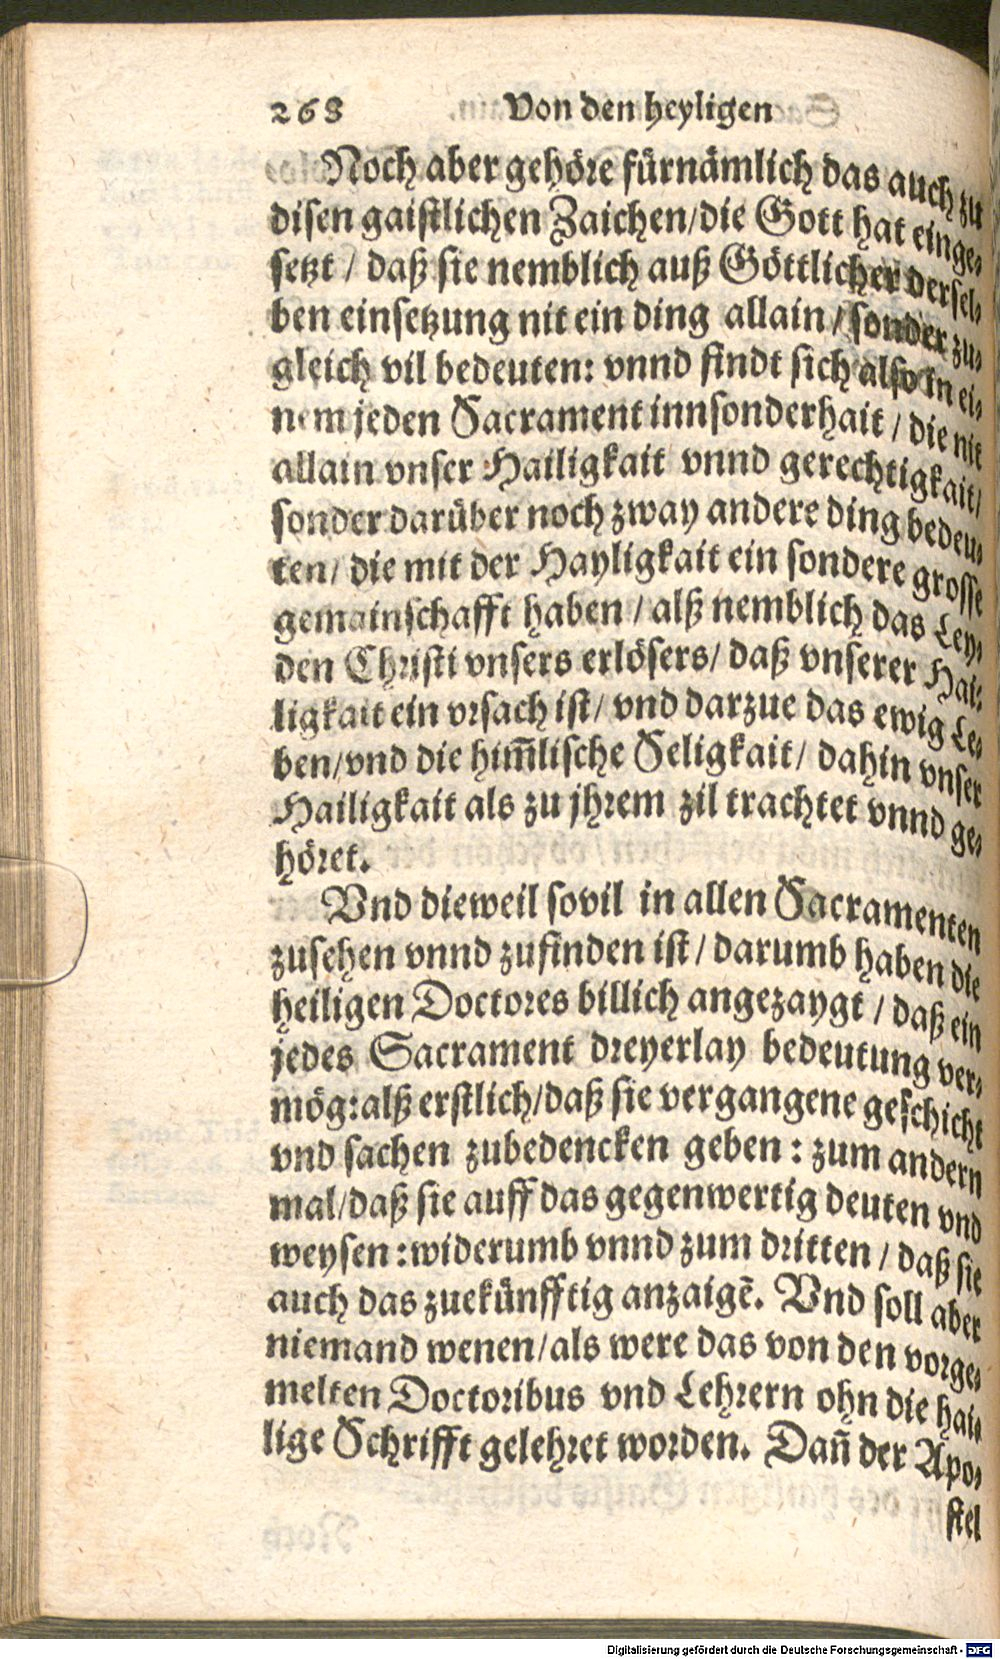 268 Von den heyligen
Noch aber gehöre fürnämlich das auch zu
disen gaistlichen Zaichen/die Gott hat einge⸗
setzt / daß sie nemblich auß Göttlicher dersel⸗
ben einsetzung nit ein ding allain / sonder zu⸗
gleich vil bedeuten: vnnd findt sich also in ei⸗
nem jeden Sacrament innsonderhait / die nit
allain vnser Hailigkait vnnd gerechtigkait/
sonder darüber noch zway andere ding bedeu⸗
ten/ die mit der Hayligkait ein sondere grosse
gemainschafft haben / alß nemblich das Ley⸗
den Christi vnsers erlösers/ daß vnserer Hai⸗
ligkait ein vrsach ist/ vnd darzue das ewig Le⸗
ben/vnd die him̃lische Seligkait/ dahin vnser
Hailigkait als zu jhrem zil trachtet vnnd ge⸗
höret.
Vnd dieweil sovil in allen Sacramenten
zusehen vnnd zufinden ist/ darumb haben die
heiligen Doctores billich angezaygt / daß ein
jedes Sacrament dreyerlay bedeutung ver⸗
mög:alß erstlich/daß sie vergangene geschicht
vnd sachen zubedencken geben : zum andern
mal/daß sie auff das gegenwertig deuten vnd
weysen :widerumb vnnd zum dritten / daß sie
auch das zuekünfftig anzaigẽ. Vnd soll aber
niemand wenen/als were das von den vorge⸗
melten Doctoribus vnd Lehrern ohn die hai⸗
lige Schrifft gelehret worden. Dañ der Apo⸗
stel
Digitalisierung gefördert durch die Deutsche Forschungsgemeinschaft - DFG